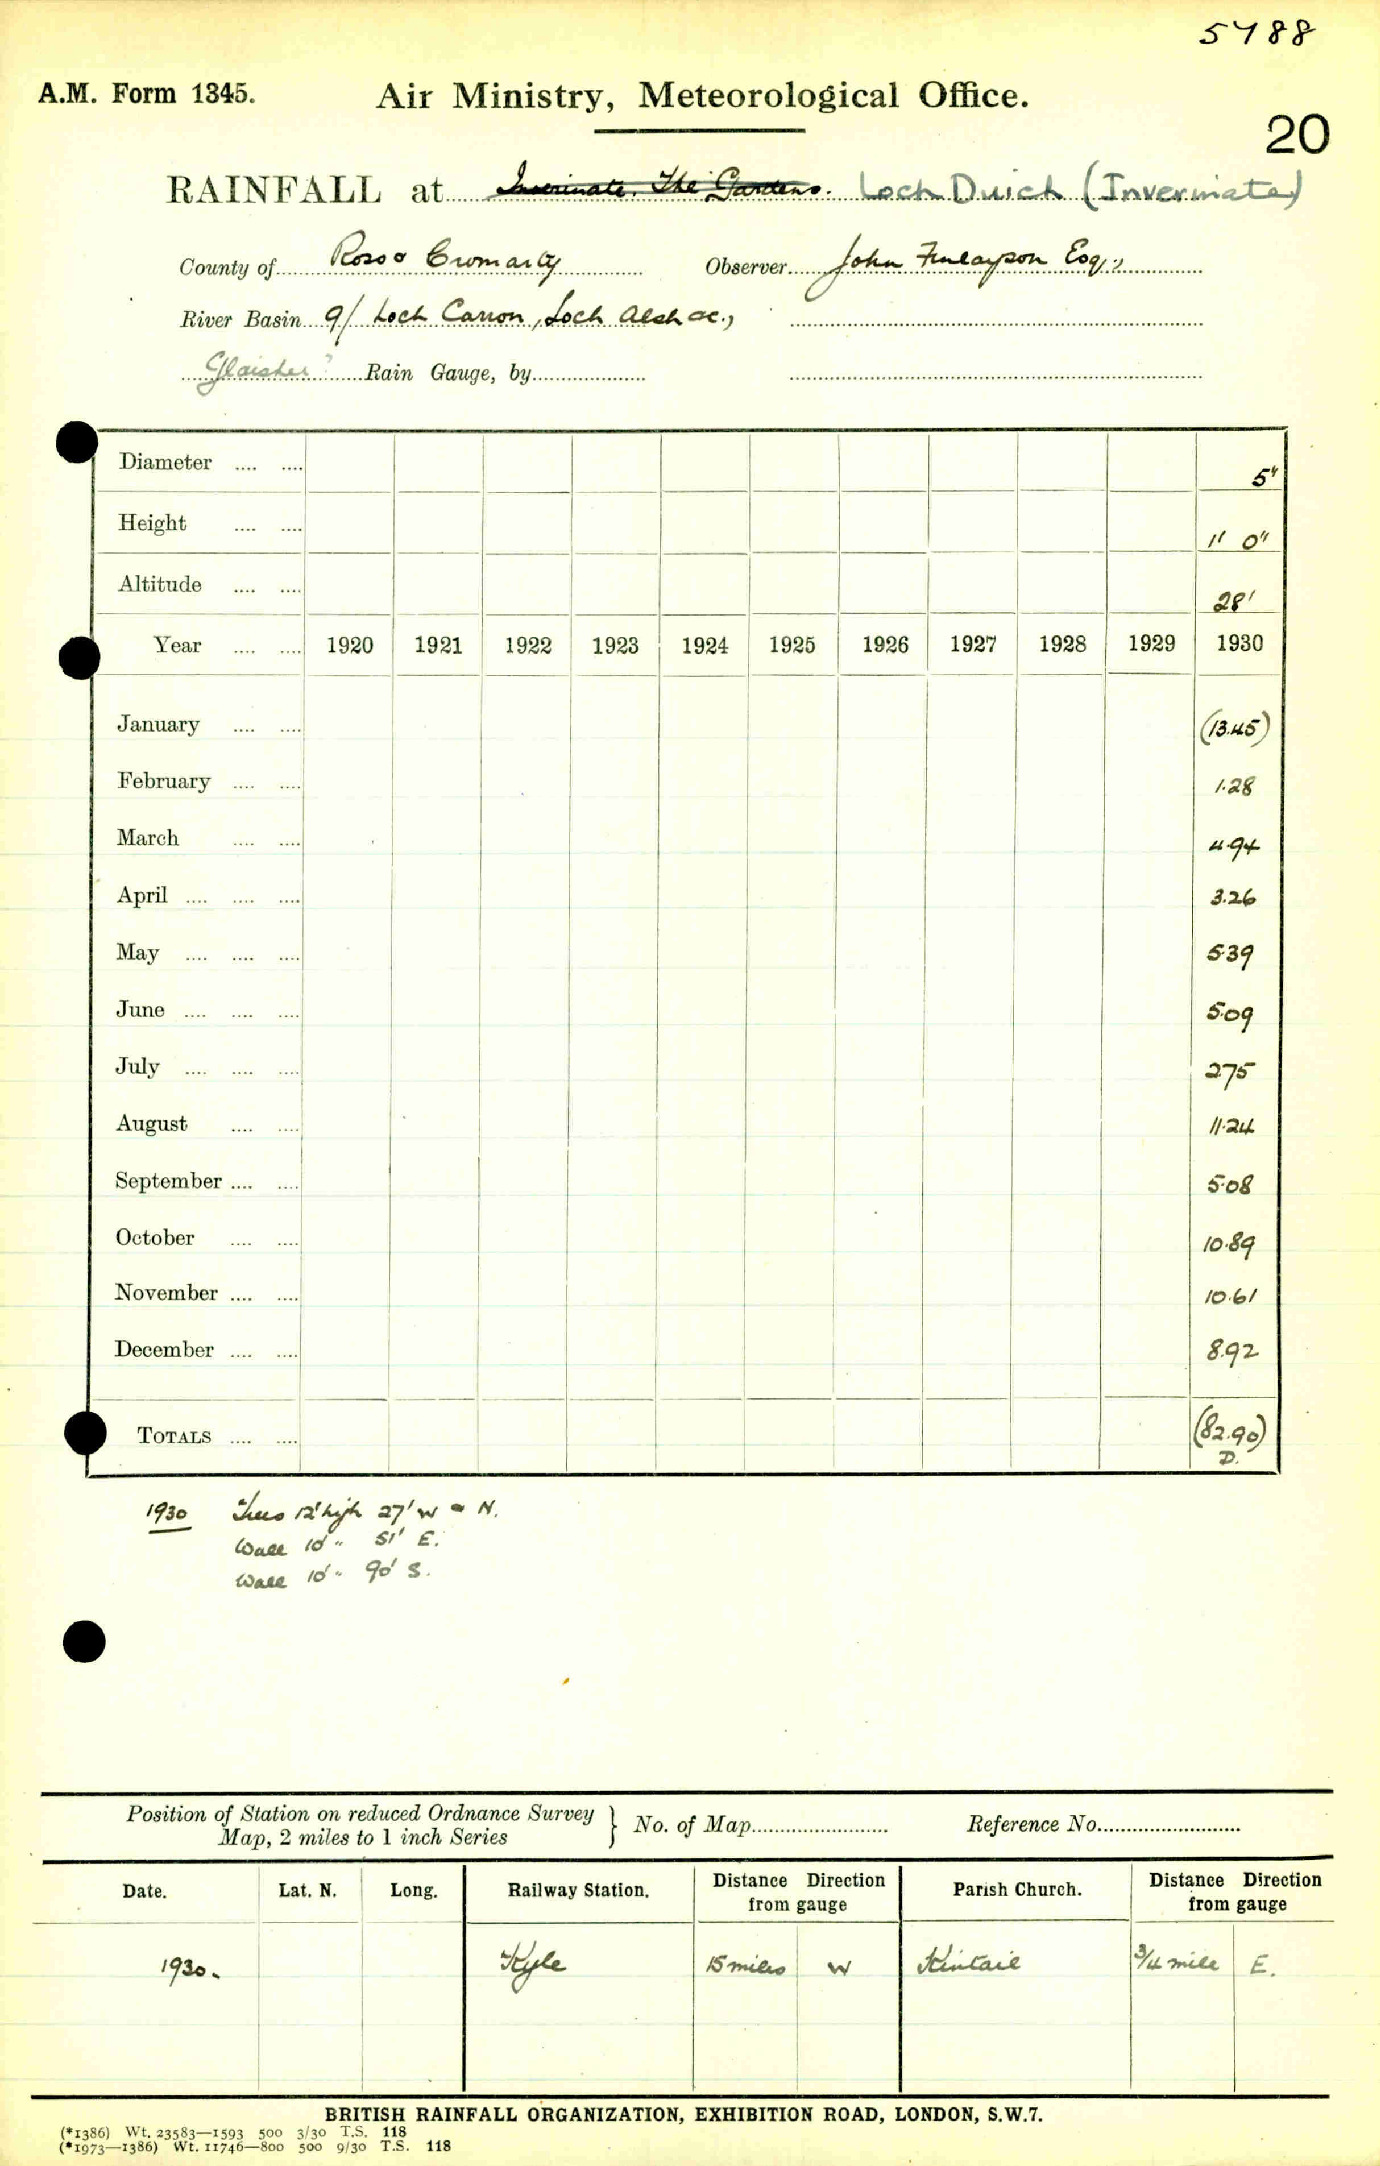 5488
A.M. Form 1345.
Air Ministry, Meteorological Office.
20
RAINFALL at Inverinate. The Gardens. Loch Duich (Inverinate)
County of Ross & Cromarty Observer John Finlayson Esq.,
River Basin 9/ Loch Carron, Loch Alsh &c.,
Glaisher? Rain Gauge, by
Diameter .... .... 5"
Height .... .... 1' 0"
Altitude .... .... 28'
Year .... .... 1920 1921 1922 1923 1924 1925 1926 1927 1928 1929 1930
January .... .... (13.45)
February .... .... 1.28
March .... .... 4.94
April .... .... .... 3.26
May .... .... .... 5.39
June .... .... .... 5.09
July .... .... .... 2.75
August .... .... 11.24
September .... .... 5.08
October .... .... 10.89
November .... .... 10.61
December .... .... 8.92
TOTALS .... .... (82.90)
D.
1930 Trees 12' high 27' W & N.
Wall 10' " 51' E.
Wall 10' " 90' S.
Position of Station on reduced Ordnance Survey
Map, 2 miles to 1 inch Series } No. of Map Reference No.
Date. Lat. N. Long. Railway Station. Distance Direction from gauge Parish Church. Distance Direction from gauge
1930. Kyle 15 miles W Kintail 3/4 mile E.
BRITISH RAINFALL ORGANIZATION, EXHIBITION ROAD, LONDON, S.W.7.
(*1386) Wt. 23583—1593 500 3/30 T.S. 118
(*1973—1386) Wt. 11746—800 500 9/30 T.S. 118